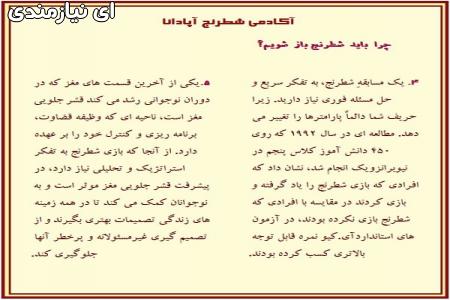 ای نیازمندی
آکادمی شطرنج آپادانا
چرا باید شطرنج باز شویم؟
۴. یک مسابقه شطرنج، به تفکر سریع و
حل مسئله فوری نیاز دارید. زیرا
حریف شما دائماً پارامترها را تغییر می
دهد. مطالعه ای در سال ۱۹۹۲ که روی
۴۵۰ دانش آموز کلاس پنجم در
نیوبرانزویک انجام شد، نشان داد که
افرادی که بازی شطرنج را یاد گرفته و
بازی کردند در مقایسه با افرادی که
شطرنج بازی نکرده بودند، در آزمون
های استانداردآی.کیو نمره قابل توجه
بالاتری کسب کرده بودند.
۵.یکی از آخرین قسمت های مغز که در
دوران نوجوانی رشد می کند قشر جلویی
مغز است، ناحیه ای که وظیفه قضاوت،
برنامه ریزی و کنترل خود را بر عهده
دارد. از آنجا که بازی شطرنج به تفکر
استراتژیک و تحلیلی نیاز دارد، در
پیشرفت قشر جلویی مغز موثر است و به
نوجوانان کمک می کند تا در همه زمینه
های زندگی تصمیمات بهتری بگیرند و از
تصمیم گیری غیرمسئولانه و پرخطر آنها
جلوگیری کند.